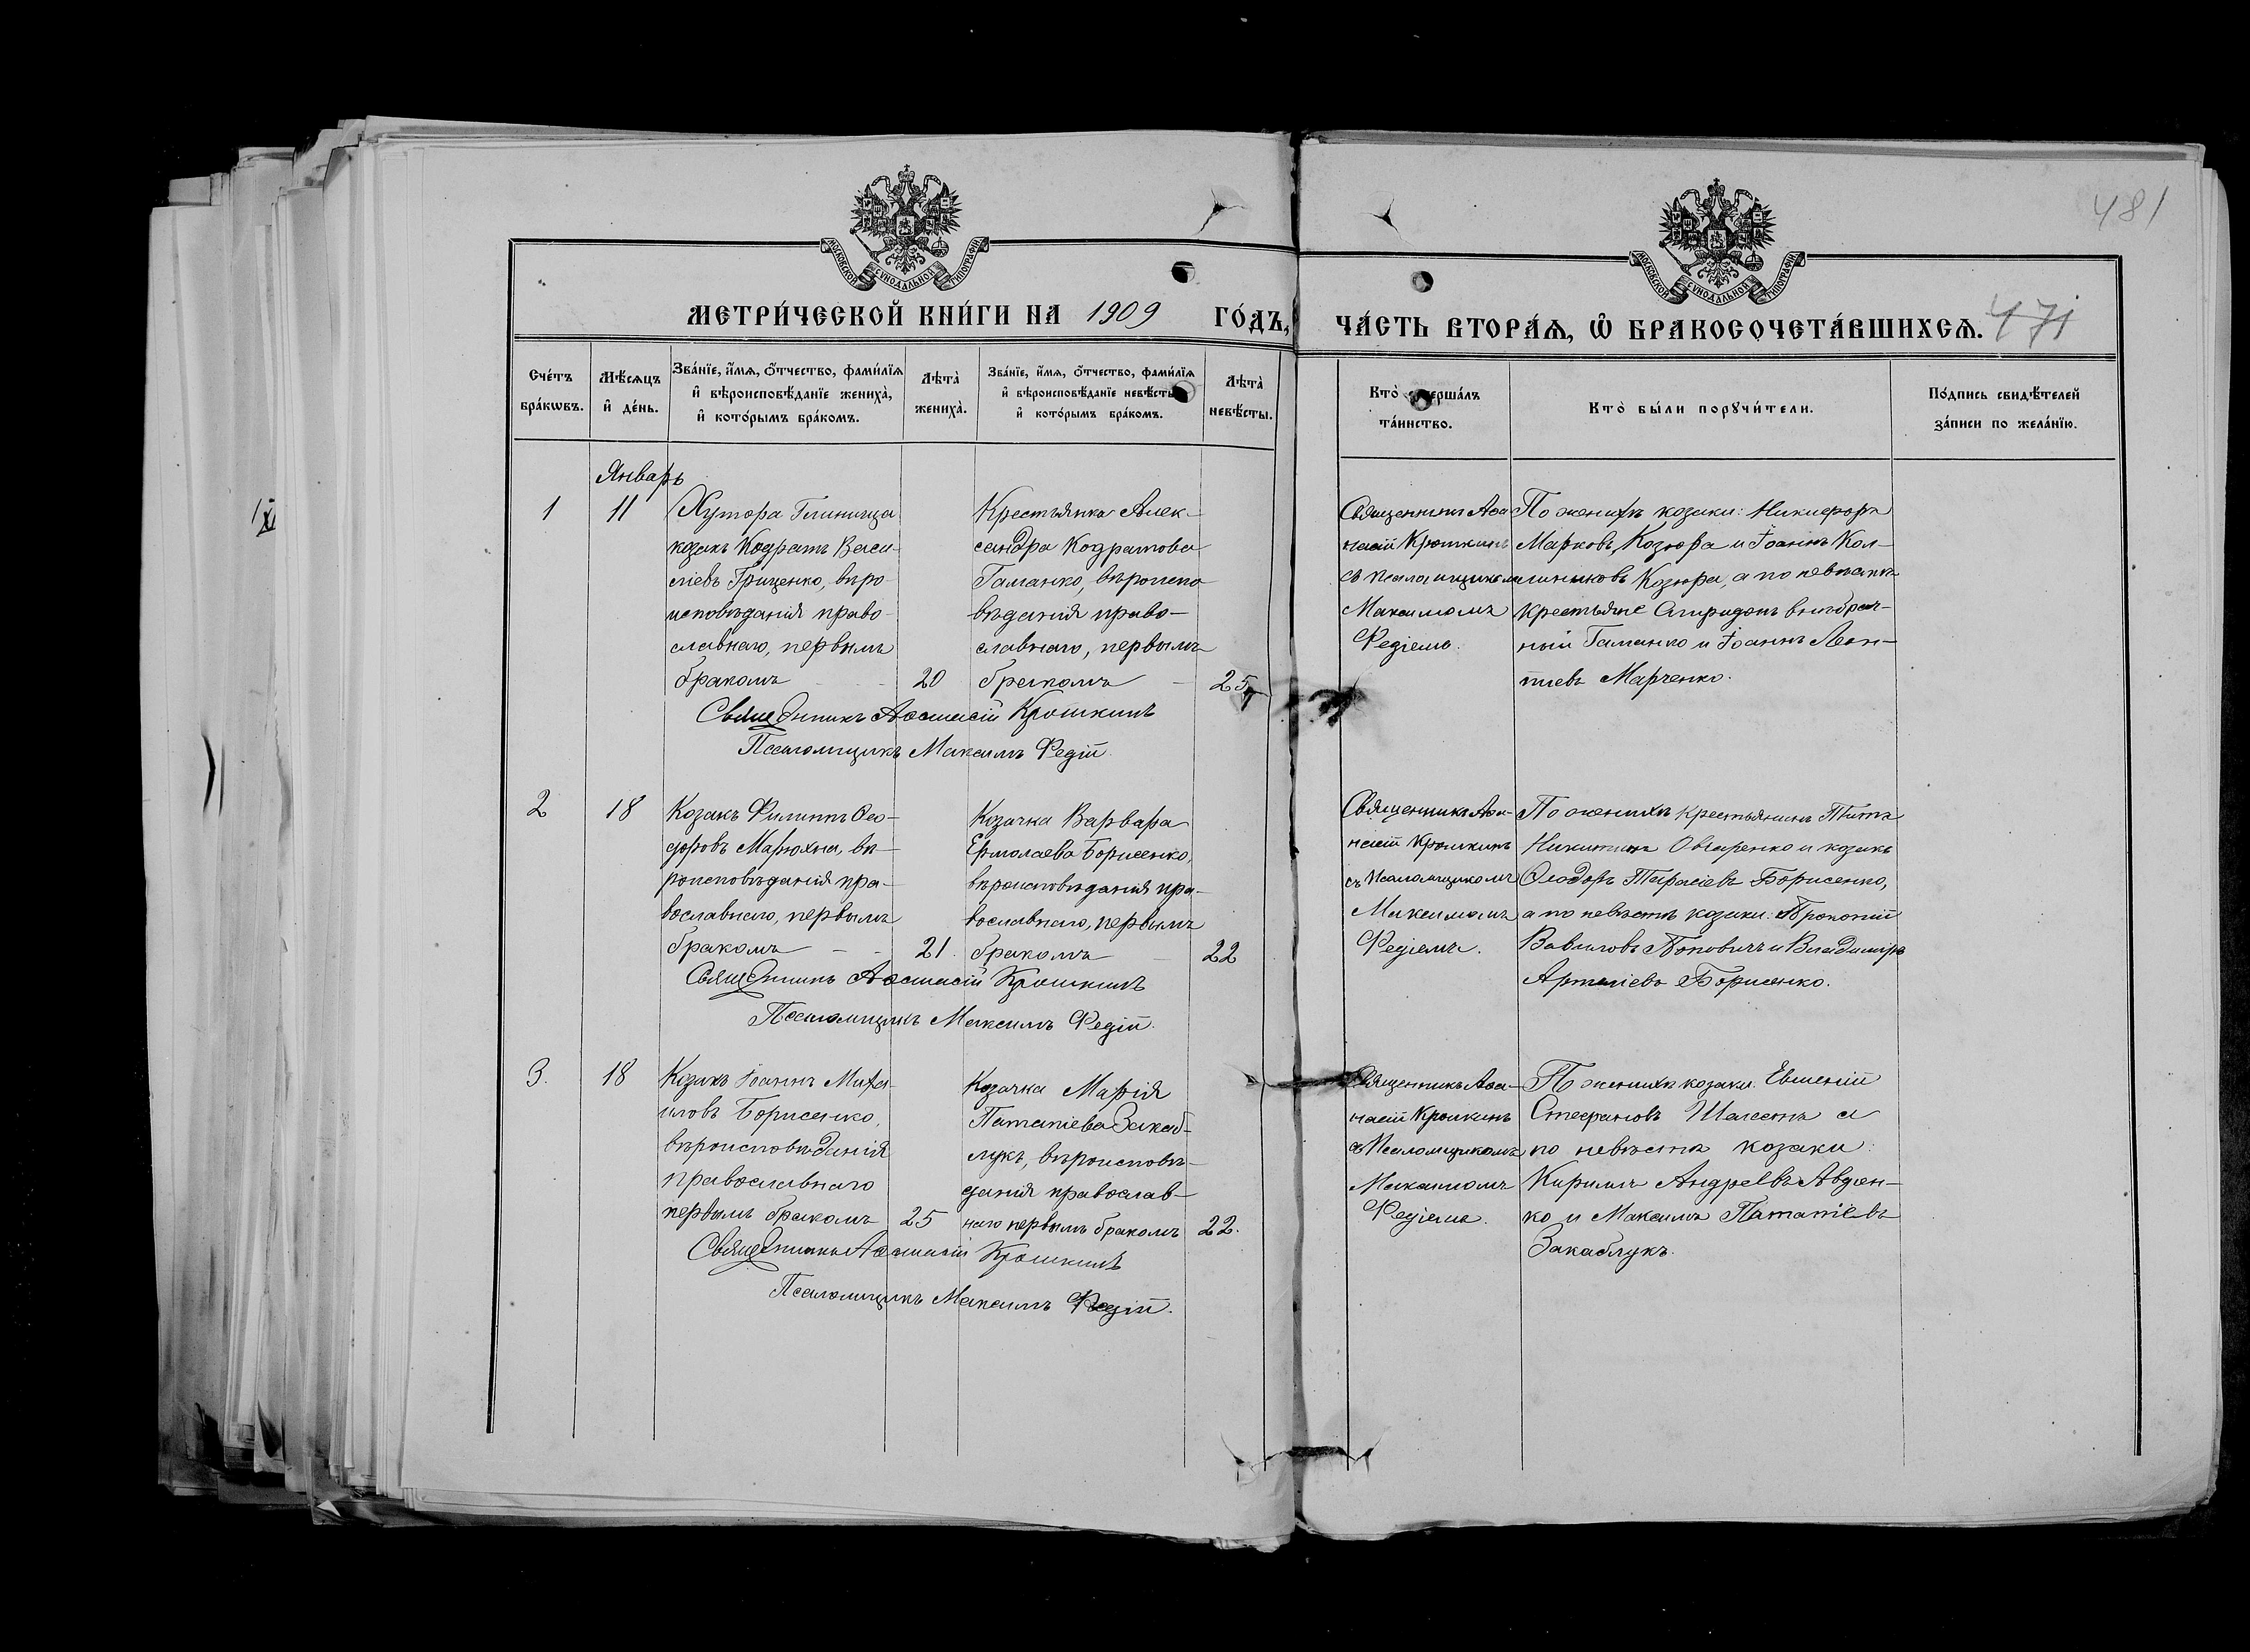 481
МОСКОВСКОЙ СѴНОДАЛЬНОЙ ТИПОГРАФІИ
МОСКОВСКОЙ СѴНОДАЛЬНОЙ ТИПОГРАФІИ
МЕТРИ́ЧЕСКОЙ КНИ́ГИ НА 1909 ГО́ДЪ,
ЧА́СТЬ ВТОРА́Ѧ, Ѽ БРАКОСОЧЕТА́ВШИХСѦ.
471
Сче́тъ бра́кѡвъ.
Мѣ́сѧцъ и҆ де́нь.
Зва́нїе, и҆́мѧ, ѻ҆́тчество, фами́лїѧ
и҆ вѣроисповѣ́данїе жениха̀,
и҆ кото́рымъ бра́комъ.
Лѣ́та̀ жениха̀.
Зва́нїе, и҆́мѧ, ѻ҆́тчество, фами́лїѧ
и҆ вѣроисповѣ́данїе невѣ́сты
и҆ кото́рымъ бра́комъ.
Лѣ́та̀ невѣ́сты.
Кто̀ соверша́лъ
та́инство.
Кто̀ бы́ли порꙋчи́тели.
По́дпись свидѣ́телей
за́писи по жела́нїю.
Январь
1
11
Хутора Глинища
козакъ Кодратъ Васи-
лiевъ Гриценко, вѣро-
исповѣданiя право-
славнаго, первымъ
бракомъ
20
Крестьянка Алек-
сандра Кодратова
Гаманко, вѣроиспо
вѣданiя право-
славнаго, первымъ
бракомъ
25
Священникъ Аѳа
насiй Крошкинъ
съ псаломщикомъ
Максимомъ
Федiемъ.
По женихѣ козаки: Никифоръ
Марковъ Козюра и Iоаннъ Кал-
линиковъ Козюра, а по невѣстѣ
крестьяне Спиридонъ внибрач-
ный Гаманко и Iоаннъ Леон-
тiевъ Марченко.
Священникъ Аѳанасiй Крошкинъ
Псаломщикъ Максимъ Федiй
2
18
Козакъ Филиппъ Ѳео-
доровъ Марюхна, вѣ-
роисповѣданiя пра-
вославнаго, первымъ
бракомъ
21.
Козачка Варвара
Ермолаева Борисенко,
вѣроисповѣданiя пра-
вославнаго, первымъ
бракомъ
22
Священникъ Аѳа-
насiй Крошкинъ
съ Псаломщикомъ
Максимомъ
Федiемъ.
По женихѣ крестьянинъ Титъ
Никитинъ Овчаренко и козакъ
Ѳеодоръ Тарасiевъ Борисенко,
а по невѣстѣ козаки: Прокопiй
Вавиловъ Поповичъ и Владимiръ
Артемiевъ Борисенко.
Священникъ Аѳанасiй Крошкинъ
Псаломщикъ Максимъ Федiй.
3.
18
Козакъ Iоаннъ Миха-
иловъ Борисенко,
вѣроисповѣданiя
православнаго
первымъ бракомъ
25
Козачка Марiя
Патапiева Закаб-
лукъ, вѣроисповѣ-
данiя православ-
наго первымъ бракомъ
22.
Священникъ Аѳа-
насiй Крошкинъ
съ Псаломщикомъ
Максимомъ
Федiемъ.
По женихѣ козаки: Евменiй
Стефановъ Шелестъ а
по невѣстѣ козаки:
Кирилъ Андреевъ Авдiен-
ко и Максимъ Патапiевъ
Закаблукъ.
Священникъ Аѳанасiй Крошкинъ
Псаломщикъ Максимъ Федiй.